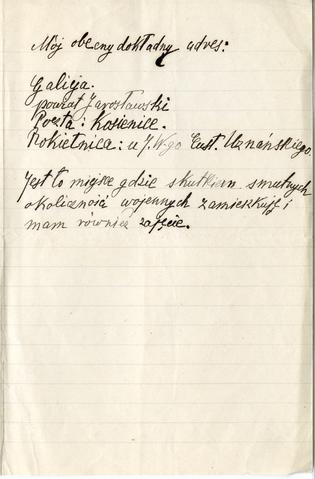 Mój obecny dokładny adres:
Galicja.
powiat Jarosławski
Poczta: Kosienice.
Rokietnica: u J. Wgo Eust. Uznańskiego.
Jest to miejsce gdzie skutkiem smutnych
okoliczności wojennych zamieszkuję i
mam również zajęcie.